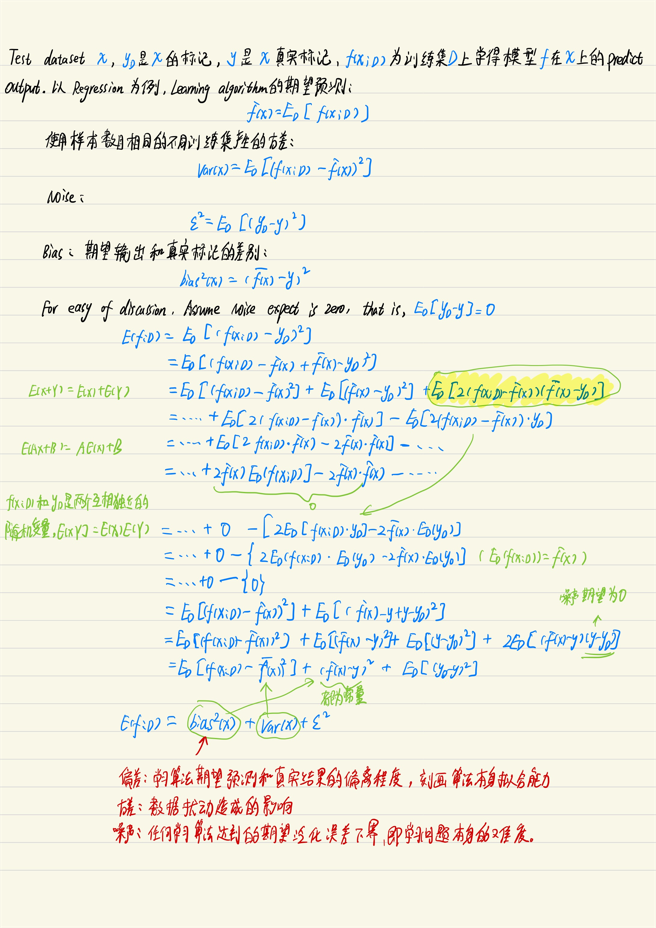 Test dataset x, y_D是x的标记, y是x真实标记, f(x;D)为训练集D上学得模型f在x上的predict
output. 以 Regression 为例, Learning algorithm的期望预测:
f̄(x)=E_D[f(x;D)]
使用样本数目相同的不同训练集产生的方差:
Var(x)=E_D[(f(x;D)-f̄(x))²]
Noise:
ε²=E_D[(y_D-y)²]
Bias: 期望输出和真实标记的差别:
bias²(x)=(f̄(x)-y)²
For easy of discution. Assume noise expect is zero, that is, E_D[y_D-y]=0
E(f;D)= E_D[(f(x;D)-y_D)²]
=E_D[(f(x;D)-f̄(x)+f̄(x)-y_D)²]
E(x+Y)=E(x)+E(Y) =E_D[(f(x;D)-f̄(x))²]+E_D[(f̄(x)-y_D)²]+E_D[2(f(x;D)-f̄(x))(f̄(x)-y_D)]
=....+E_D[2(f(x;D)-f̄(x))·f̄(x)]-E_D[2(f(x;D)-f̄(x))·y_D]
E(Ax+B)=AE(x)+B =....+E_D[2f(x;D)·f̄(x)-2f̄(x)·f̄(x)]-....
=...+2f̄(x)E_D[f(x;D)]-2f̄(x)·f̄(x)-.....
0
f(x;D)和y_D是两个互相独立的
随机变量,E[XY]=E(X)E(Y) =...+0-[2E_D[f(x;D)·y_D]-2f̄(x)·E_D(y_D)]
=...+0-{2E_D(f(x;D)·E_D(y_D)-2f̄(x)·E_D(y_D)] (E_D(f(x;D))=f̄(x))
=...+0-{0}
噪声期望为0
=E_D[(f(x;D)-f̄(x))²]+E_D[(f̄(x)-y+y-y_D)²]
=E_D[(f(x;D)-f̄(x))²)+E_D[(f̄(x)-y)²]+E_D[(y-y_D)²]+2E_D[(f̄(x)-y)(y-y_D)]
=E_D[(f(x;D)-f̄(x))²]+(f̄(x)-y)²+E_D[(y_D-y)²]
都为常量
E(f;D)=bias²(x)+Var(x)+ε²
偏差: 学习算法期望预测和真实结果的偏离程度, 刻画算法本身拟合能力
方差: 数据扰动造成的影响
噪声: 任何学习算法达到的期望泛化误差下界,即学习问题本身的难度。